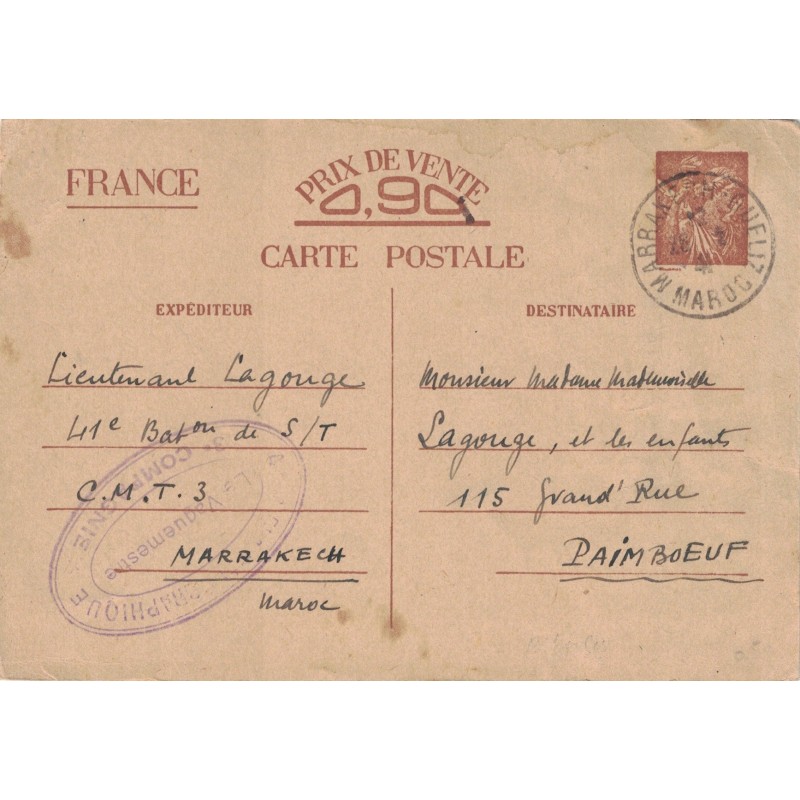 FRANCE
PRIX DE VENTE
0,90
CARTE POSTALE
MARRAKECH-GUELIZ
MAROC
EXPÉDITEUR
Lieutenant Lagouge
41e Baton de S/T
C.M.T.3
MARRAKECH
Maroc
3e COMPAGNIE
Le Vaguemestre
DESTINATAIRE
Monsieur Madame Mademoiselle
Lagouge, et les enfants
115 Grand' Rue
PAIMBOEUF